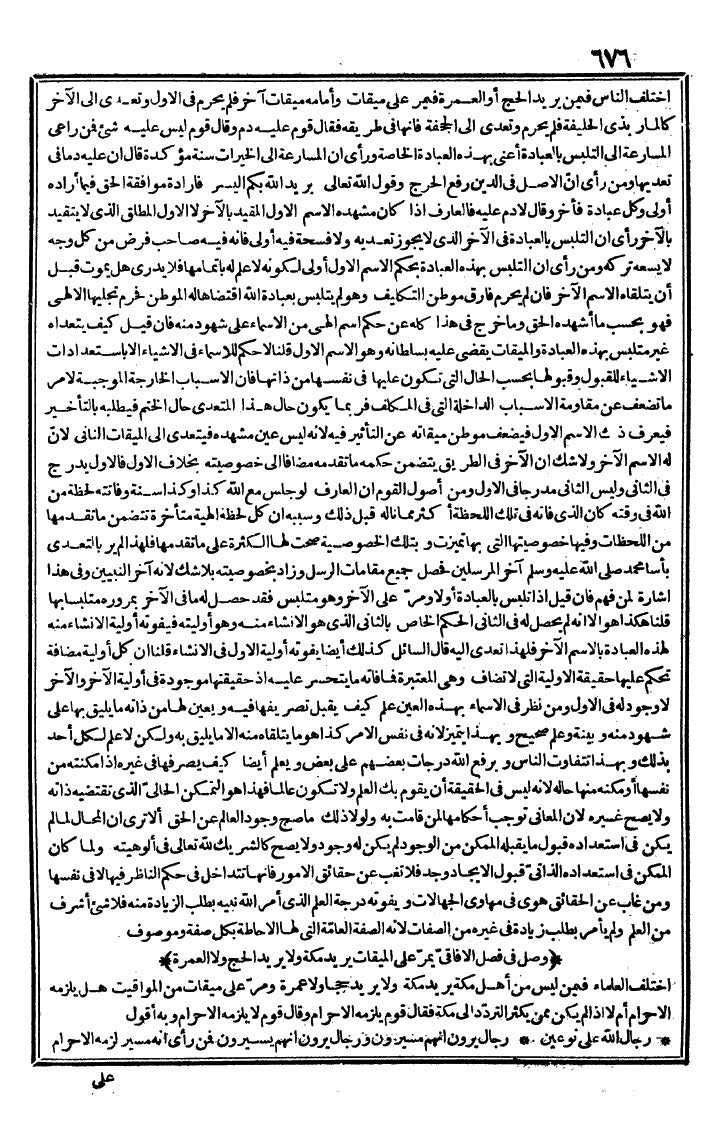 ٦٧٦
اختلف الناس فيمن يريد الحج أو العمرة فيمر على ميقات وأمامه ميقات آخر فلم يحرم فى الاول وتعدى الى الآخر
كالمار بذى الحليفة فلم يحرم وتعدى الى الجحفة فانها فى طريقه فقال قوم عليه دم وقال قوم ليس عليه شئ فن راعى
المسارعة الى التلبس بالعبادة أعنى بهذه العبادة الخاصة ورأى ان المسارعة الى الخيرات سنة مؤكدة قال ان عليه دما فى
تعديها ومن رأى انّ الاصل فى الدين رفع الحرج وقول الله تعالى يريد الله بكم اليسر فارادة موافقة الحق فيما أراده
أولى وكل عبادة فأخر وقال لادم عليه فالعارف اذا كان مشهده الاسم الاول المقيد بالآخر لا الاول المطلق الذى لا يتقيد
بالآخر رأى ان التلبس بالعبادة فى الآخر الذى لا يجوز تعديه ولا فسحة فيه أولى فانه فيه صاحب فرض من كل وجه
لا يسعه تركه ومن رأى ان التلبس بهذه العبادة بحكم الاسم الاول أولى لكونه لا علم له باتمامها فلا يدرى هل يموت قبل
أن يتلقاه الاسم الآخر فان لم يحرم فارق موطن التكليف وهو لم يتلبس بعبادة الله اقتضاها له الموطن فحرم تجليها الالهى
فهو بحسب ما أشهده الحق وما خرج فى هذا كله عن حكم اسم الهى من الاسماء على شهود منه فان قيل كيف يتعداه
غير متلبس بهذه العبادة والميقات يقضى عليه بسلطانه وهو الاسم الاول قلنا لا حكم للاسماء فى الاشياء الا باستعدادات
الاشياء للقبول وقبولها بحسب الحال التى تكون عليها فى نفسها من ذاتها فان الاسباب الخارجة الموجبة لامر
ما تضعف عن مقاومة الاسباب الداخلة التى فى المكلف فربما يكون حال هذا المتعدى حال الختم فيطلبه بالتأخير
فيعرف ذلك الاسم الاول فيضعف موطن ميقاته عن التأثير فيه لانه ليس عين مشهده فيتعدى الى الميقات الثانى لانّ
له الاسم الآخر ولاشك ان الآخر فى الطريق يتضمن حكمه ما تقدمه مضافا الى خصوصيته بخلاف الاول فالاول يدرج
فى الثانى وليس الثانى مدرجا فى الاول ومن أصول القوم ان العارف لو جلس مع الله كذا وكذا سنة وفاتته لحظة من
الله فى وقته كان الذى فاته فى تلك اللحظة أكثر مما ناله قبل ذلك وسببه ان كل لحظة الهية متأخرة تتضمن ما تقدمها
من اللحظات وفيها خصوصيتها التى بها تميزت وبتلك الخصوصية صحت لها الكثرة على ما تقدمها فلهذا لم ير بالتعدى
بأسا محمد صلى الله عليه وسلم آخر المرسلين فحصل جميع مقامات الرسل وزاد بخصوصيته بلاشك لانه آخر النبيين وفى هذا
اشارة لمن فهم فان قيل اذا تلبس بالعبادة أولا ومرّ على الآخر وهو متلبس فقد حصل له ما فى الآخر بمروره متلبسا بها
قلنا هكذا هو الا انه لم يحصل له فى الثانى الحكم الخاص بالثانى الذى هو الانشاء منه وهو أوليته فيفوته أولية الانشاء منه
لهذه العبادة بالاسم الآخر فلهذا تعدى اليه قال السائل كذلك أيضا يفوته أولية الاول فى الانشاء قلنا ان كل أولية مضافة
تحكم عليها حقيقة الاولية التى لا تضاف وهى المعتبرة فما فاته ما يتحسر عليه اذ حقيقتها موجودة فى أولية الآخر والآخر
لا وجود له فى الاول ومن نظر فى الاسماء بهذه العين علم كيف يقبل تصريفها فيه ويعين لها من ذاته ما يليق بها على
شهود منه وبينة وعلم صحيح وبهذا يتميز لانه فى نفس الامر كذا هو ما يتلقاه منه الا ما يليق به ولكن لا علم لكل أحد
بذلك وبهذا تتفاوت الناس ويرفع الله درجات بعضهم على بعض ويعلم أيضا كيف يصرفها فى غيره اذا مكنته من
نفسها أو مكنه منها حاله لانه ليس فى الحقيقة أن يقوم بك العلم ولا تكون عالما فهذا هو التمكن الحالىّ الذى تقتضيه ذاته
ولا يصح غيره لان المعانى توجب أحكامها لمن قامت به ولولا ذلك ما صح وجود العالم عن الحق ألا ترى ان المحال لما لم
يكن فى استعداده قبول ما يقبله الممكن من الوجود لم يكن له وجود ولا يصح كالشريك لله تعالى فى ألوهيته ولما كان
الممكن فى استعداده الذاتىّ قبول الايجاد وجد فلا تغب عن حقائق الامور فانها تتداخل فى حكم الناظر فيها لا فى نفسها
ومن غاب عن الحقائق هوى فى مهاوى الجهالات ويفوته درجة العلم الذى أمر الله نبيه بطلب الزيادة منه فلا شئ أشرف
من العلم ولم يأمر بطلب زيادة فى غيره من الصفات لانه الصفة العامّة التى لها الاحاطة بكل صفة وموصوف
﴿وصل فى فصل الافاقى يمرّ على الميقات يريد مكة ولا يريد الحج ولا العمرة﴾
اختلف العلماء فيمن ليس من أهل مكة يريد مكة ولا يريد حجا ولا عمرة ومرّ على ميقات من المواقيت هل يلزمه
الاحرام أم لا اذا لم يكن ممن يكثر التردّد الى مكة فقال قوم يلزمه الاحرام وقال قوم لا يلزمه الاحرام وبه أقول
* رجال الله على نوعين * رجال يرون انهم مسيرون ورجال يرون انهم يسيرون فن رأى انه مسير لزمه الاحرام
على